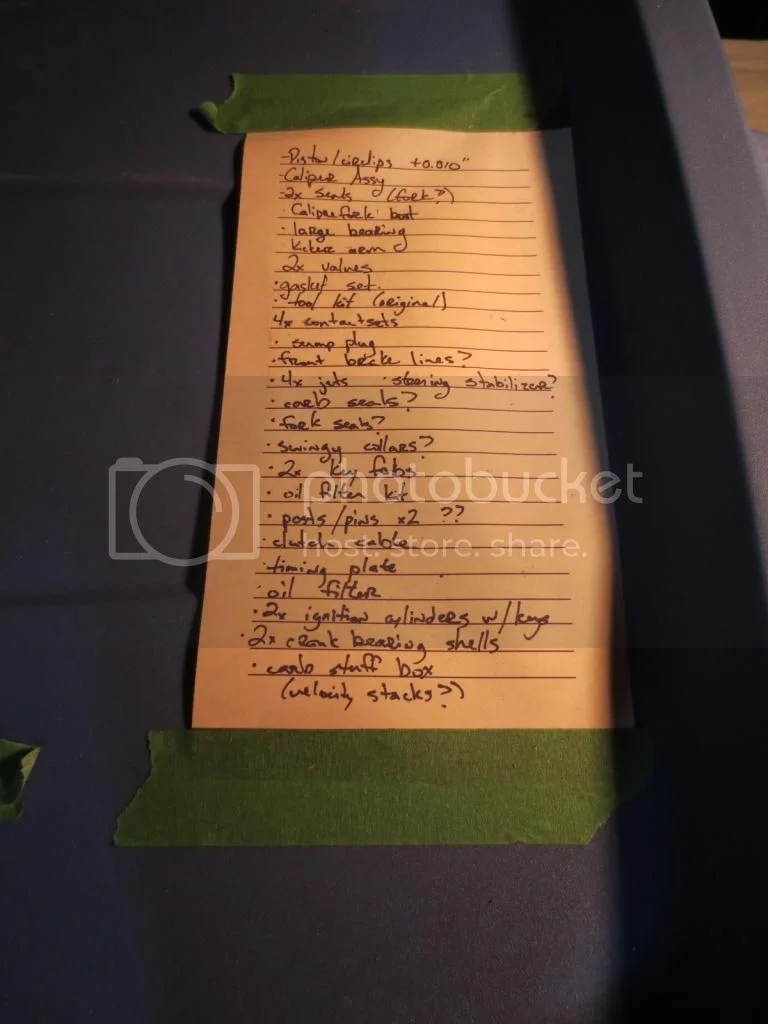 -Piston/circlips +0.010"
-Caliper Assy
-2x seals (fork?)
· Caliper fork boot
· large bearing
· Kicker arm
2x valves
· gasket set.
· tool kit (original)
4x contact sets
· sump plug
· front brake lines?
· 4x jets · steering stabilizer?
· carb seals?
· fork seals?
· swingy collars?
· 2x key fobs
· oil filter kit
· posts/pins x2 ??
· clutch cable
· timing plate
· oil filter
· 2x ignition cylinders w/keys
· 2x crank bearing shells
· carb stuff box
(velocity stacks?)
photobucket
host. store. share.